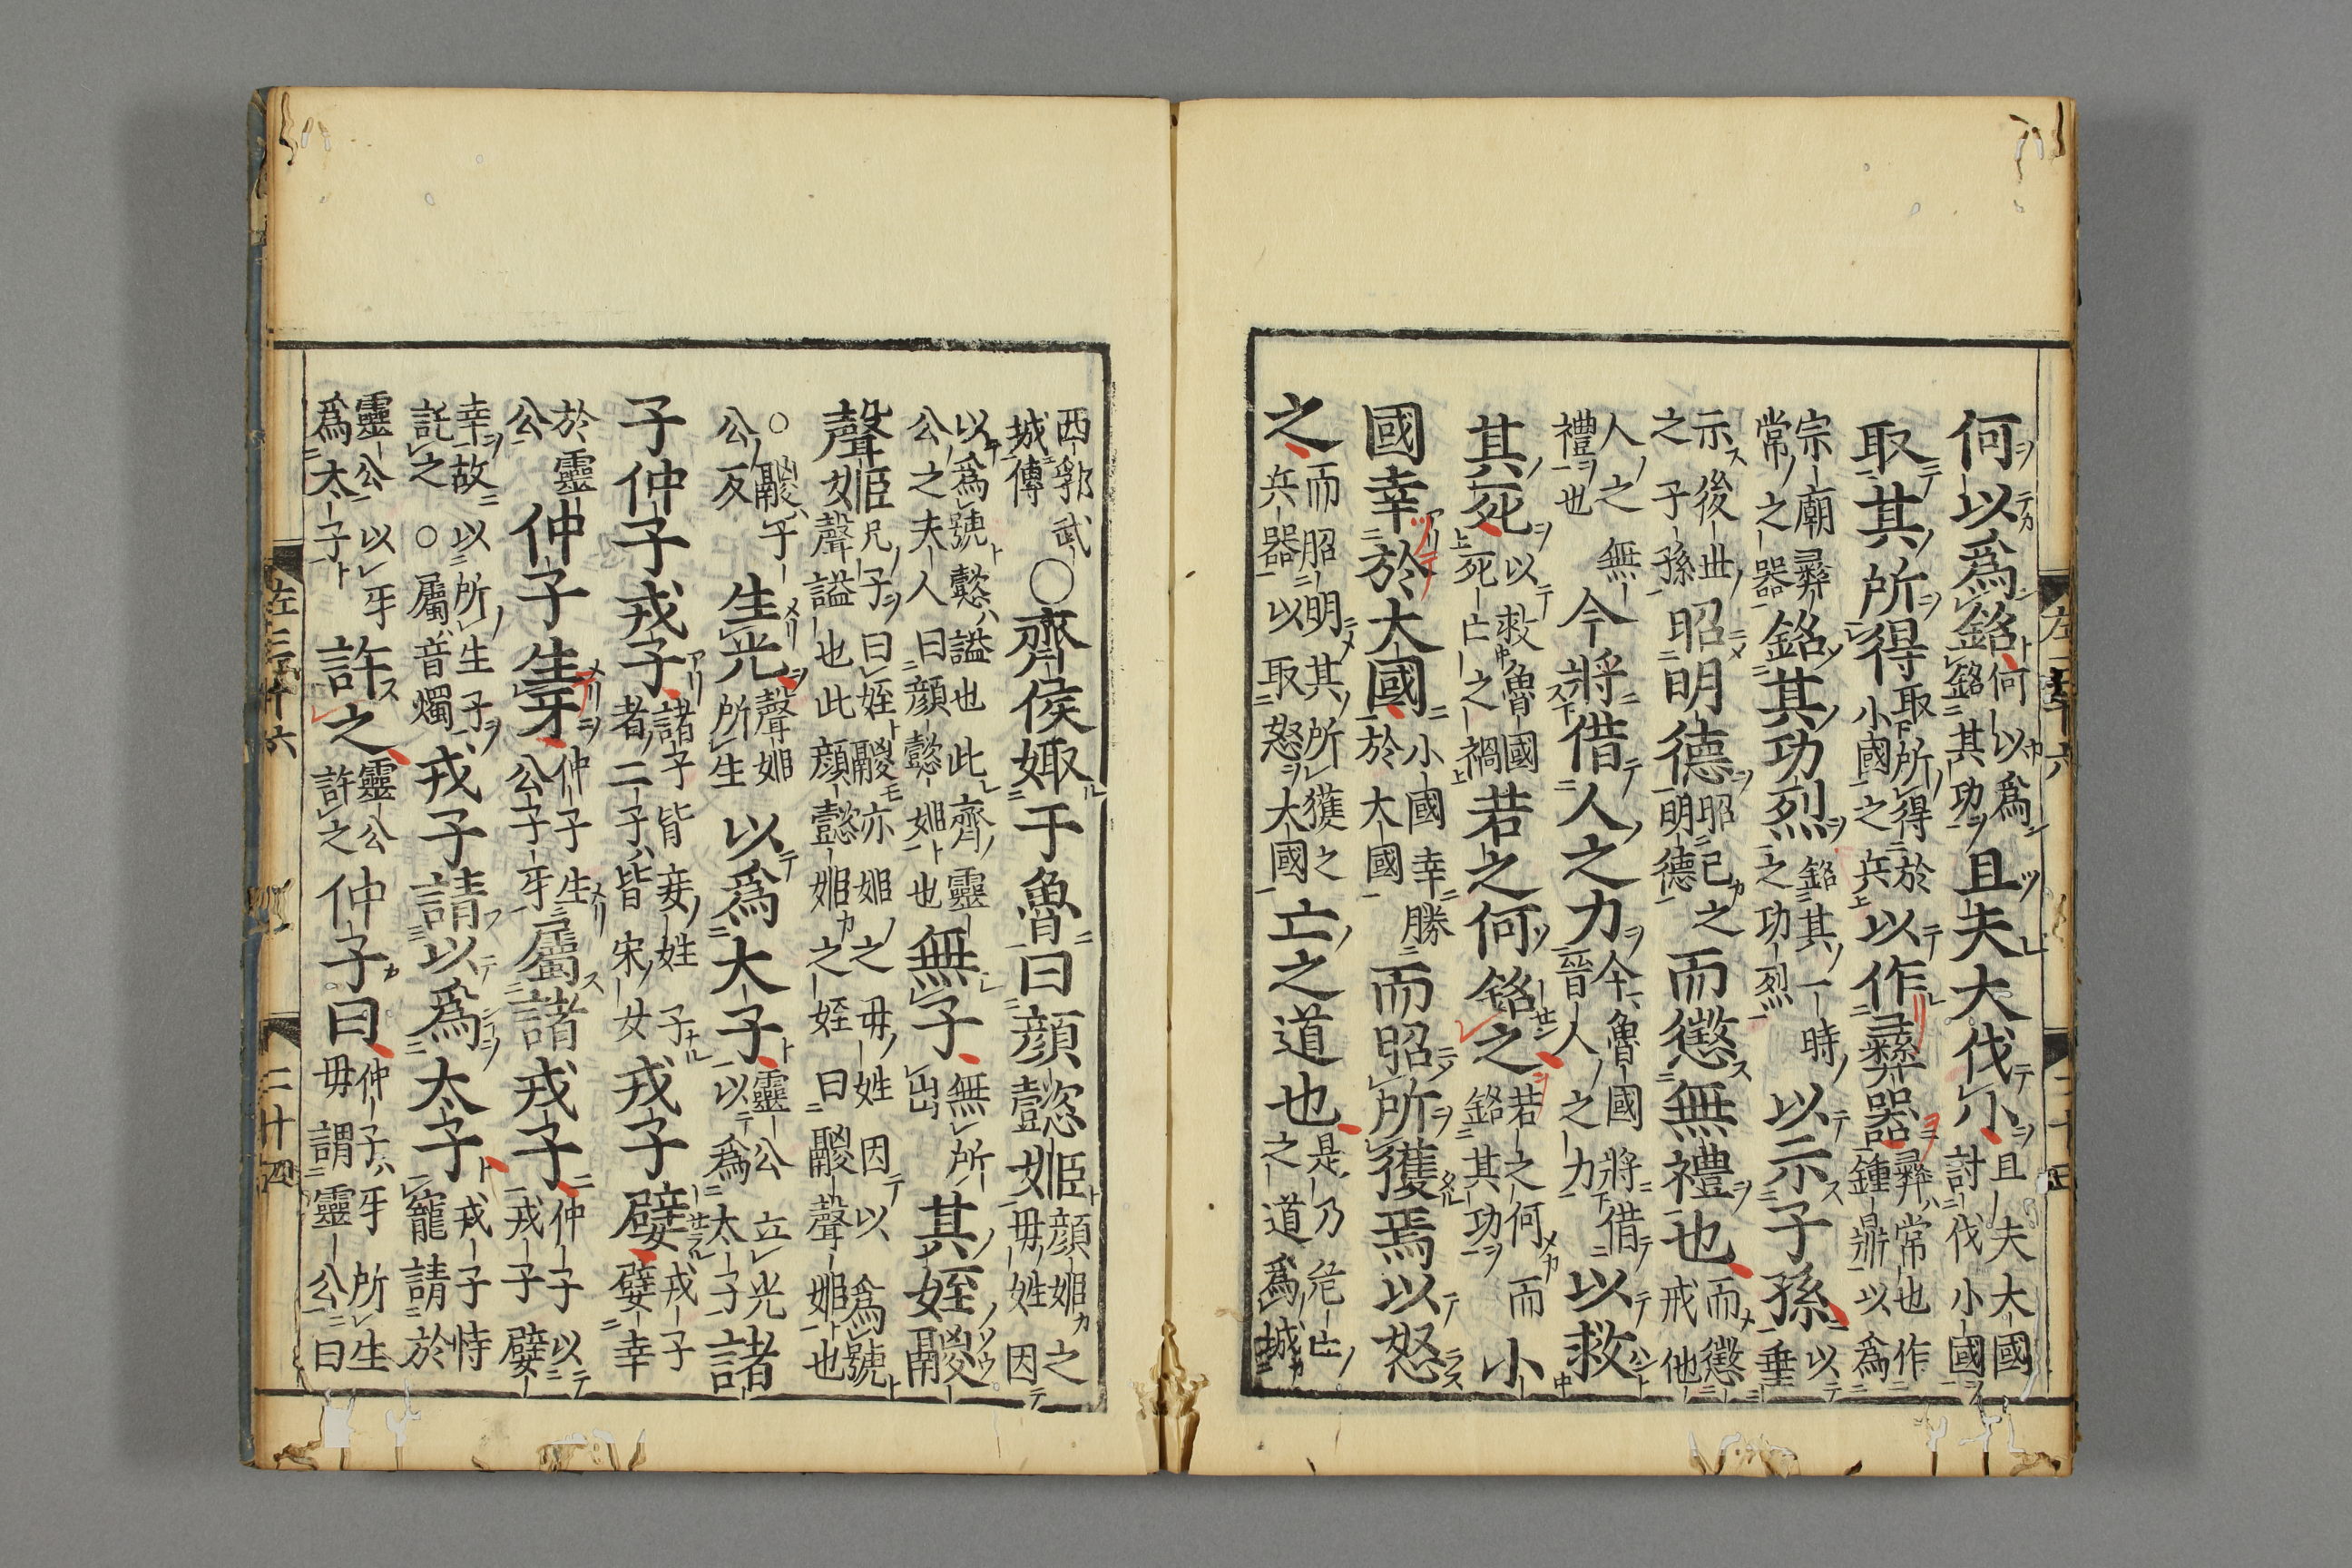 何以爲銘何以爲銘其功且夫大伐小且夫大國討伐小國
取其所得取所得於小國之兵以作彝器彝常也作鍾鼎以爲
宗廟彝常之器銘其功烈銘其一時之功烈以示子孫以垂
示後世之子孫昭明德昭己之明德而懲無禮也而懲戒他
人之無禮也今將借人之力今魯國將借晉人之力以救
其死以救魯國死亡之禍若之何銘之若之何而銘其功小
國幸於大國小國幸勝於大國而昭所獲焉以怒
之而昭明其所獲之兵器以取怒大國亡之道也是乃危亡之道爲城
西郛武城傳○齊侯娵于魯曰顔懿姬顔姬之母姓因
以爲號懿謚也此齊靈公之夫人曰顔懿姬也無子無所出其姪鬷
聲姬兄子曰姪鬷亦姬之母姓因以爲號聲謚也此顔懿姬之姪曰鬷聲姬也
○鬷子公反生光聲姬所生以爲大子靈公立光以爲太子諸
子仲子戎子諸子皆妾姓子者二子皆宋女戎子嬖戎子嬖幸
於靈公仲子生牙仲子生公子牙屬諸戎子仲子以戎子嬖
幸故以所生子託之○屬音燭戎子請以爲太子戎子恃寵請於
靈公以牙爲太子許之靈公許之仲子曰仲子牙所生母謂靈公曰
左二十六
二十四